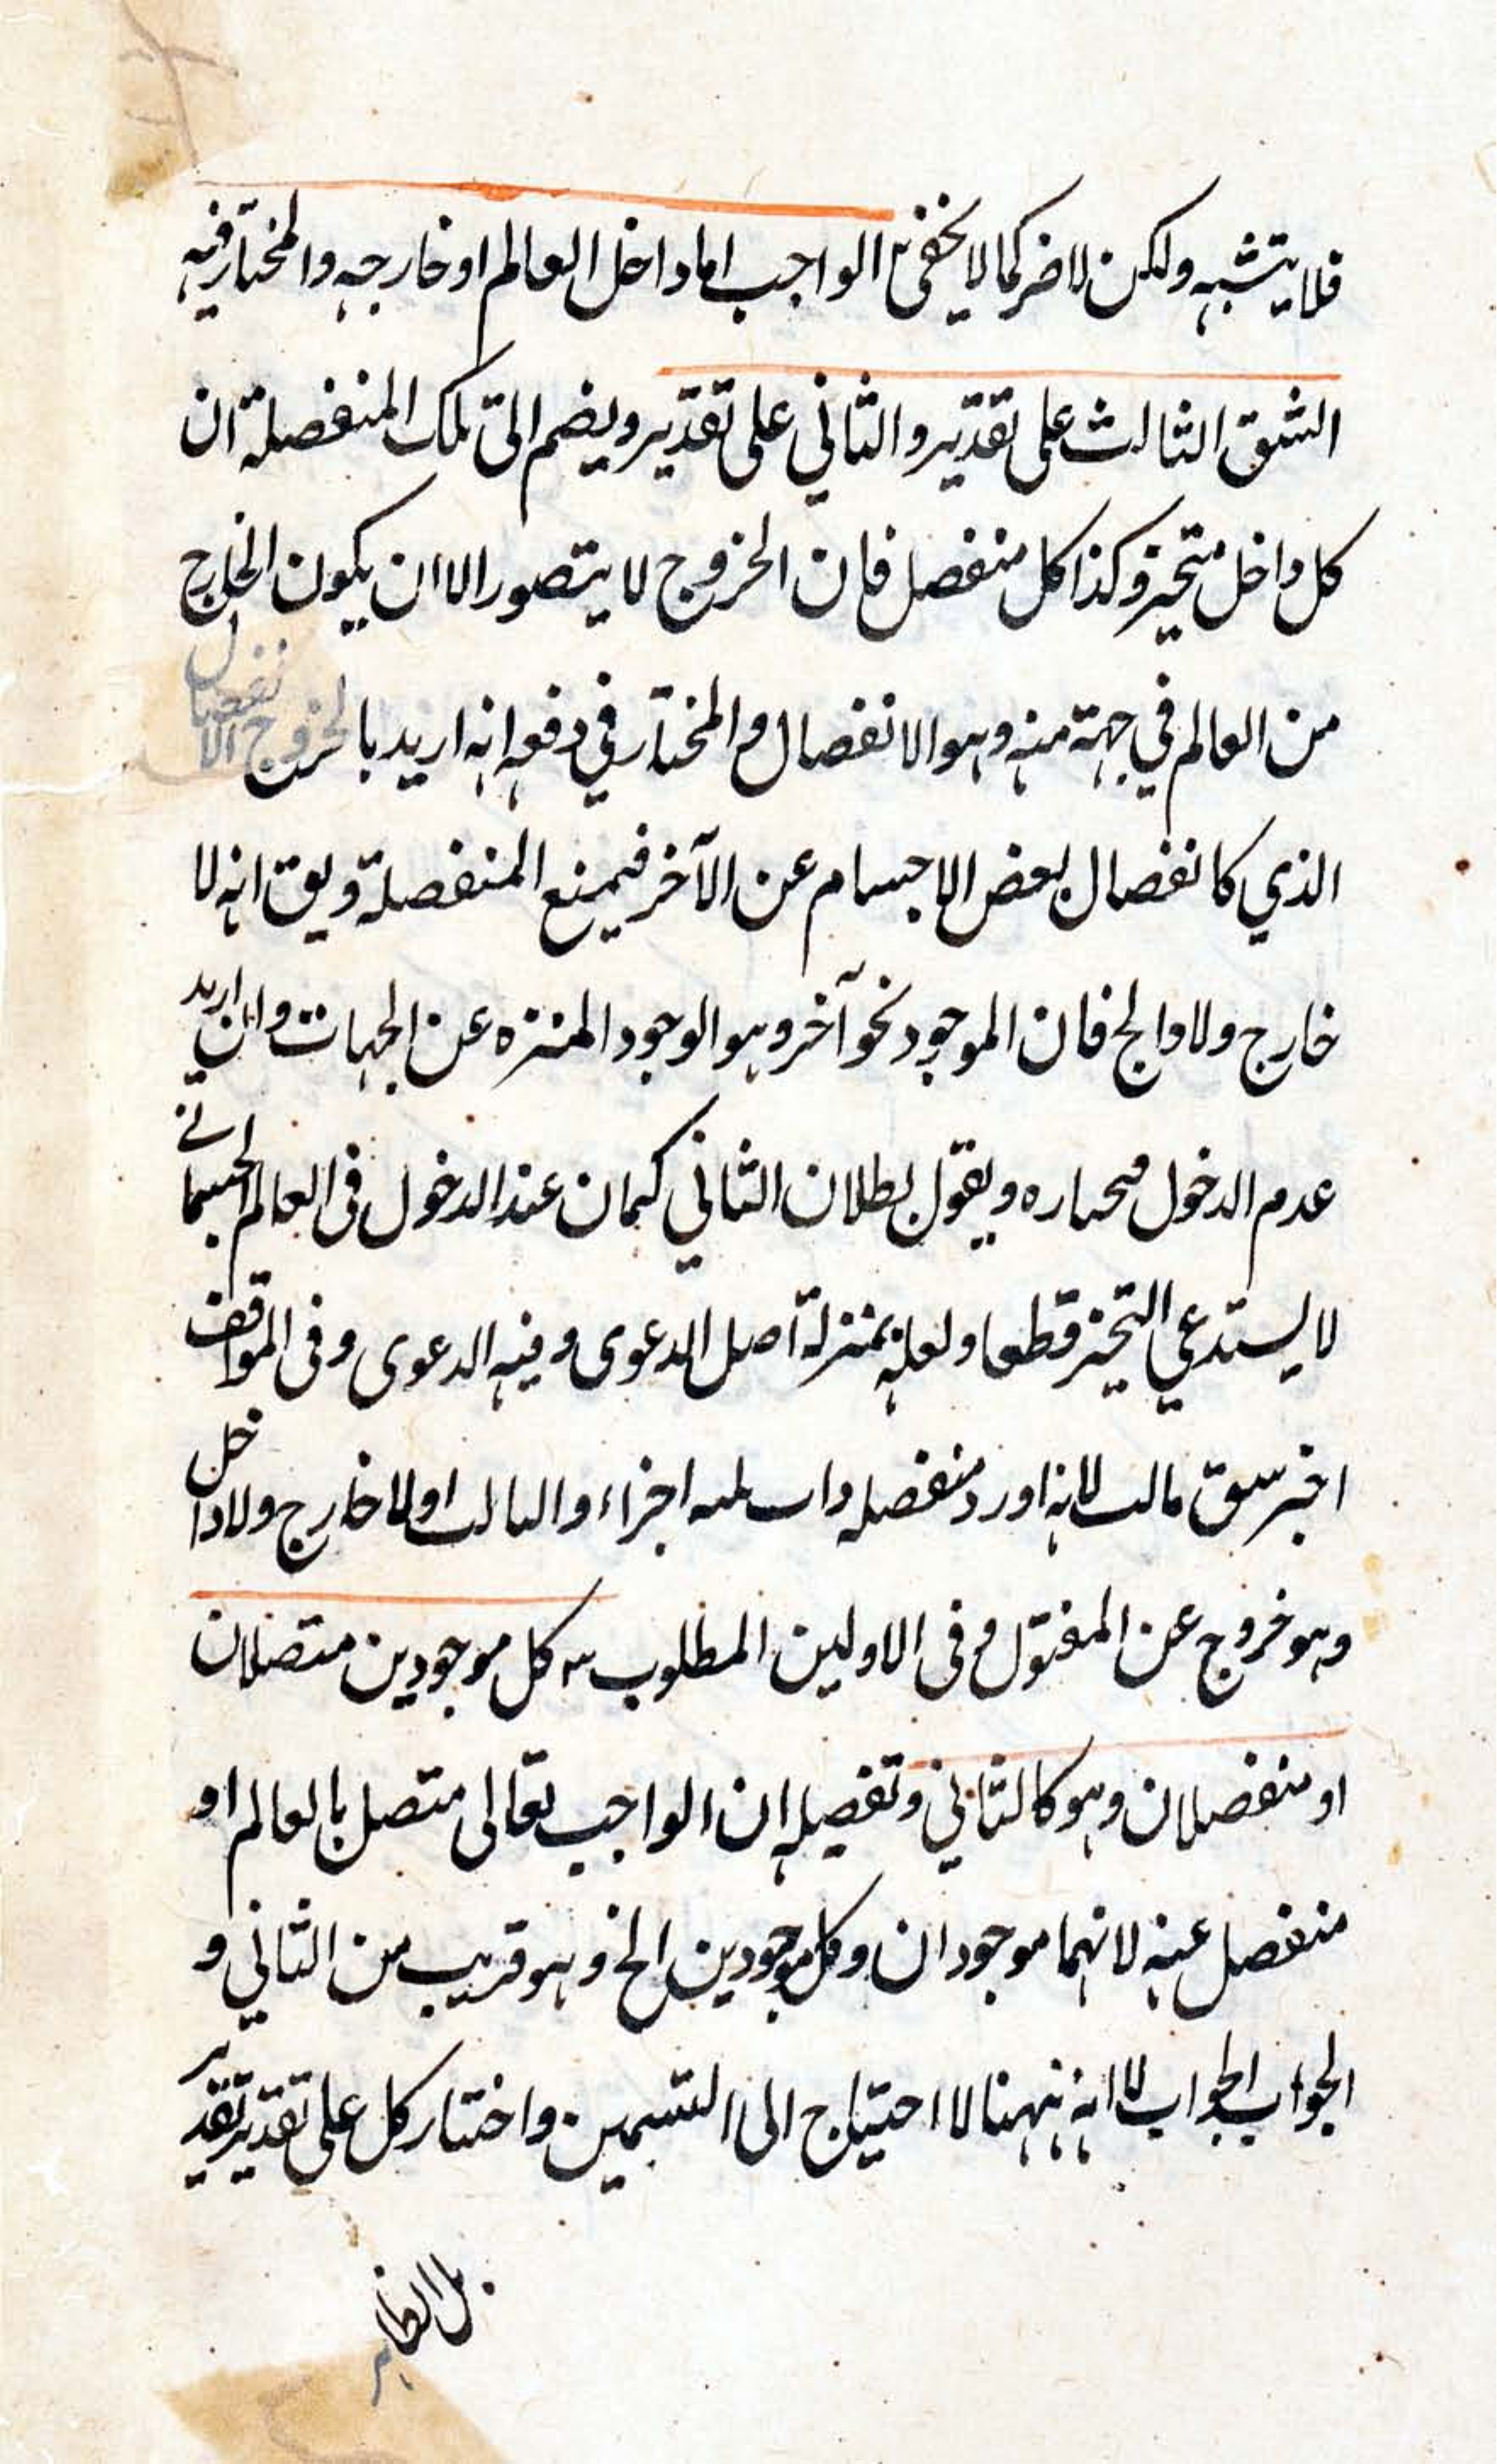 فلا يتشبه ولكن لا ضر كما لا يخفى الواجب اما داخل العالم او خارجه والمختار فيه
الشق الثالث على تقدير والثاني على تقدير ويضم الى تلك المنفصلة ان
كل داخل متحيز وكذا كل منفصل فان الخروج لا يتصور الا ان يكون الخارج
من العالم في جهة منه وهو الانفصال والمختار في دفعه انه اريد بالخروج الانفصال
الذي كانفصال بعض الاجسام عن الآخر فيمنع المنفصلة ويق انه لا
خارج ولا والج فان الموجود نحو آخر وهو الوجود المنزه عن الجهات وان اريد
عدم الدخول ويقول بطلان الثاني عند الدخول في العالم الجسماني
لا يستدعي التحيز قطعا ولعله بمنزلة اصل الدعوى وفيه الدعوى وفي المواقف
لانه اورد منفصله اجزاء خارج ولا داخل
وهو خروج عن وفي الاولين المطلوب كل موجودين متصلان
او منفصلان وهو كالثاني وتفصيله ان الواجب تعالى متصل بالعالم او
منفصل عنه لانهما موجودان وكل موجودين الخ وهو قريب من الثاني و
الجواب الجواب الا انه ههنا لا احتياج الى التقسيمين واختيار كل على تقدير تقدير
بل الظاهر